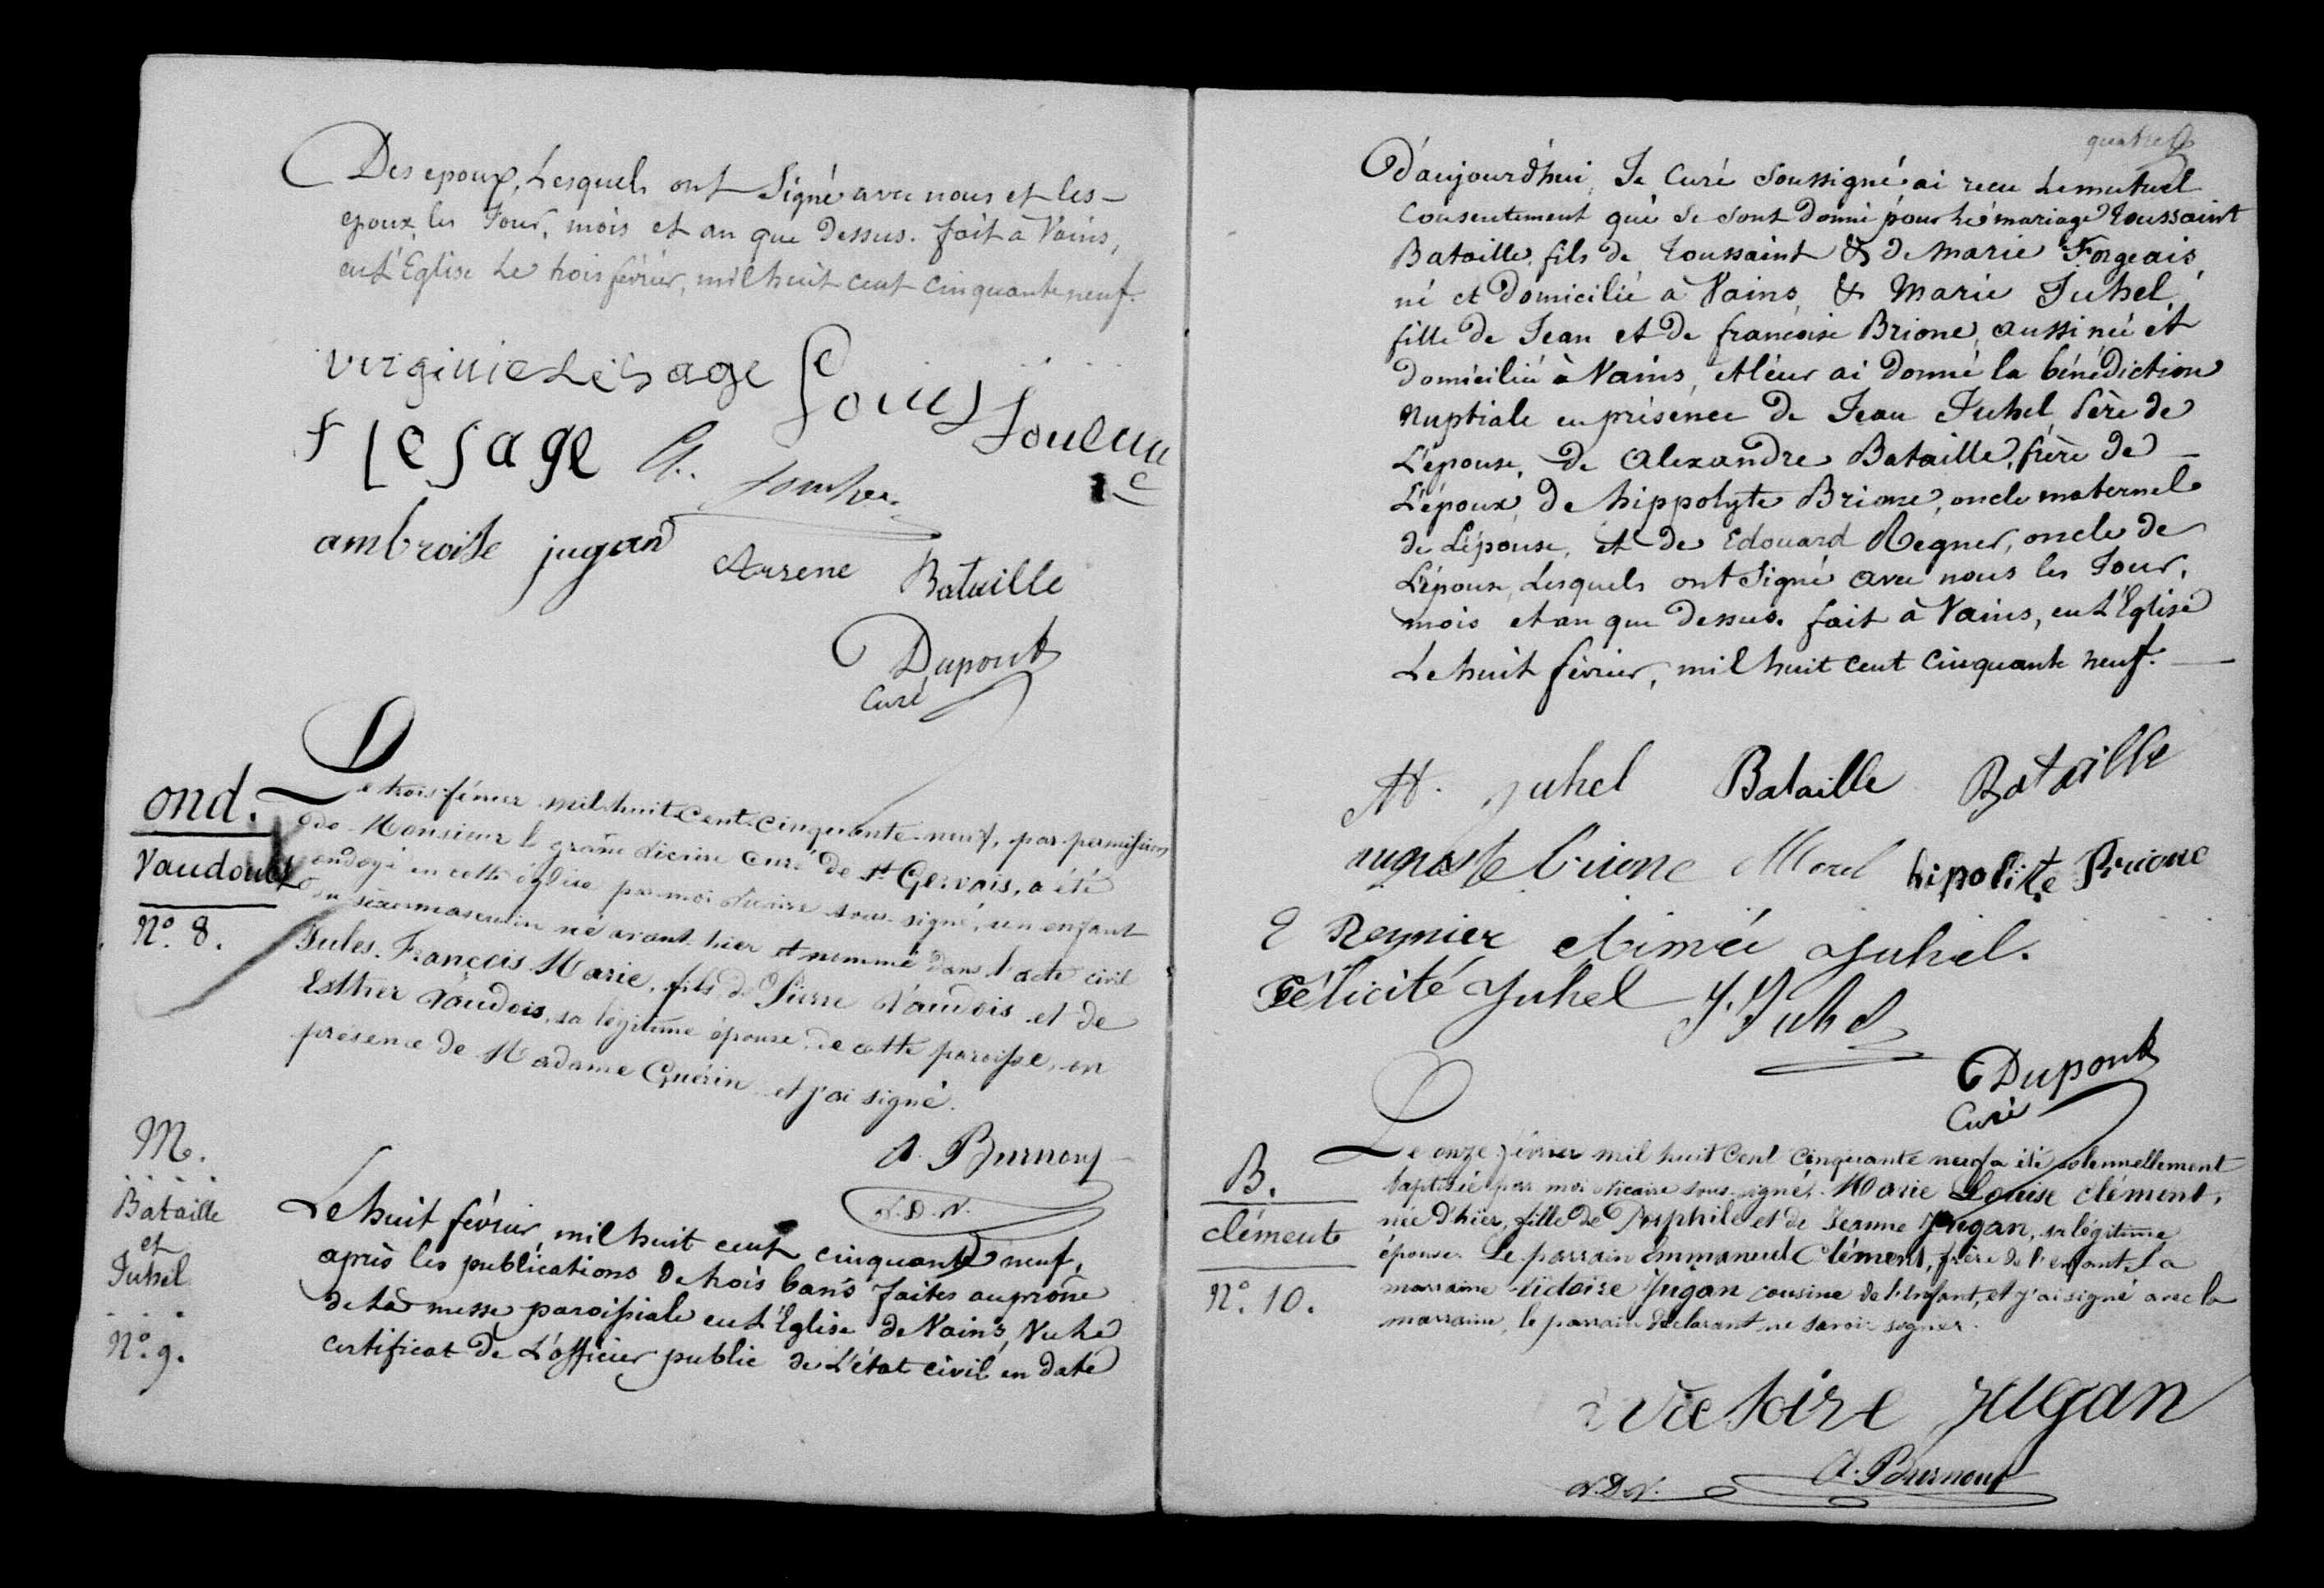 Des epoux, Lesquels ont Signé avec nous et les
epoux, les Jour, mois et an que dessus. fait à Vains,
en L'Eglise Le trois février, mil huit cent cinquante neuf.
virginie Lesage Louis
F lesage
ambroise jugan Arsene Bataille
Dupont
Curé
ond.
Vaudouer
N° 8.
Le trois février mil-huit-cent-cinquante-neuf, par permission
de Monsieur le grand vicaire curé de St Gervais, a été
ondoyé en cette église par moi vicaire sous-signé, un enfant
du sexe masculin né avant hier et nommé dans l'acte civil
Jules-François Marie, fils de Pierre Vaudois et de
Esther Vaudois, sa légitime épouse de cette paroisse, en
présence de Madame Guérin et j'ai signé.
A. Burnouf
V.D.V.
M.
Bataille
et
Juhel
N° 9.
Le huit février, mil huit cent cinquante neuf,
après les publications de trois bans faites au prône
de La messe paroissiale en L'Eglise de Vains, Vu Le
certificat de L'officier public de L'état civil en date
quatre
D'aujourd'hui, Je Curé Soussigné ai recu Le mutuel
Consentement que se sont donné pour Le mariage Toussaint
Bataille, fils de Toussaint & de Marie Forgeais,
né et domicilié à Vains, & Marie Juhel,
fille de Jean et de francoise Brione, aussi née et
domiciliée à Vains, et leur ai donné la bénédiction
Nuptiale en présence de Jean Juhel, Père de
L'épouse, de Alexandre Bataille, frère de
L'époux, de hippolyte Brione, oncle maternel
de L'épouse, et de Edouard Regner, oncle de
L'épouse, Lesquels ont signé avec nous les Jour,
mois et an que dessus. fait à Vains, en L'Eglise
Le huit février, mil huit cent cinquante neuf.
M. Juhel Bataille Bataille
auguste brione Morel hipolite Brione
E Reynier Aimée Juhel.
Félicité Juhel J. Juhel
Dupont
Curé
B.
Clément
N° 10.
Le onze février mil huit cent cinquante neuf a été solennellement
baptisée par moi vicaire sous-signé, Marie Louise Clément,
née d'hier, fille de et de Jeanne Jugan, sa légitime
épouse. Le parrain Emmanuel Clément, frère de l'enfant La
marraine Victoire Jugan cousine de l'enfant, et j'ai signé avec la
marraine, le parrain déclarant ne savoir signer.
Victoire Jugan
A. Burnouf
V.D.V.